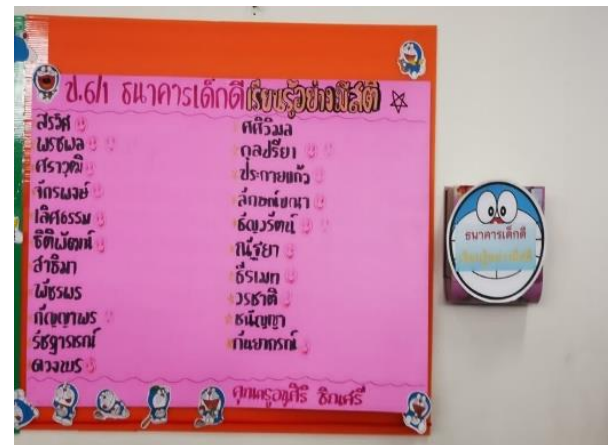 ป.6/1 ธนาคารเด็กดีเรียนรู้อย่างมีสติ
สรวิศ
พรชพล
ศราวุฒิ
จักรพงษ์
เลิศธรรม
ธิติพัฒน์
สาธิมา
พัชรพร
กัญญาพร
รัชฐาธรณ์
ดวงพร
ศศิวิมล
กุลปรียา
ประกายแก้ว
ลักษณ์ขณา
ธัญวรัตน์
ณัฐยา
ธีรเมท
วรชาติ
ชนัญญา
กันยากรณ์
คุณครู
ธนาคารเด็กดี
เรียนรู้อย่างมีสติ